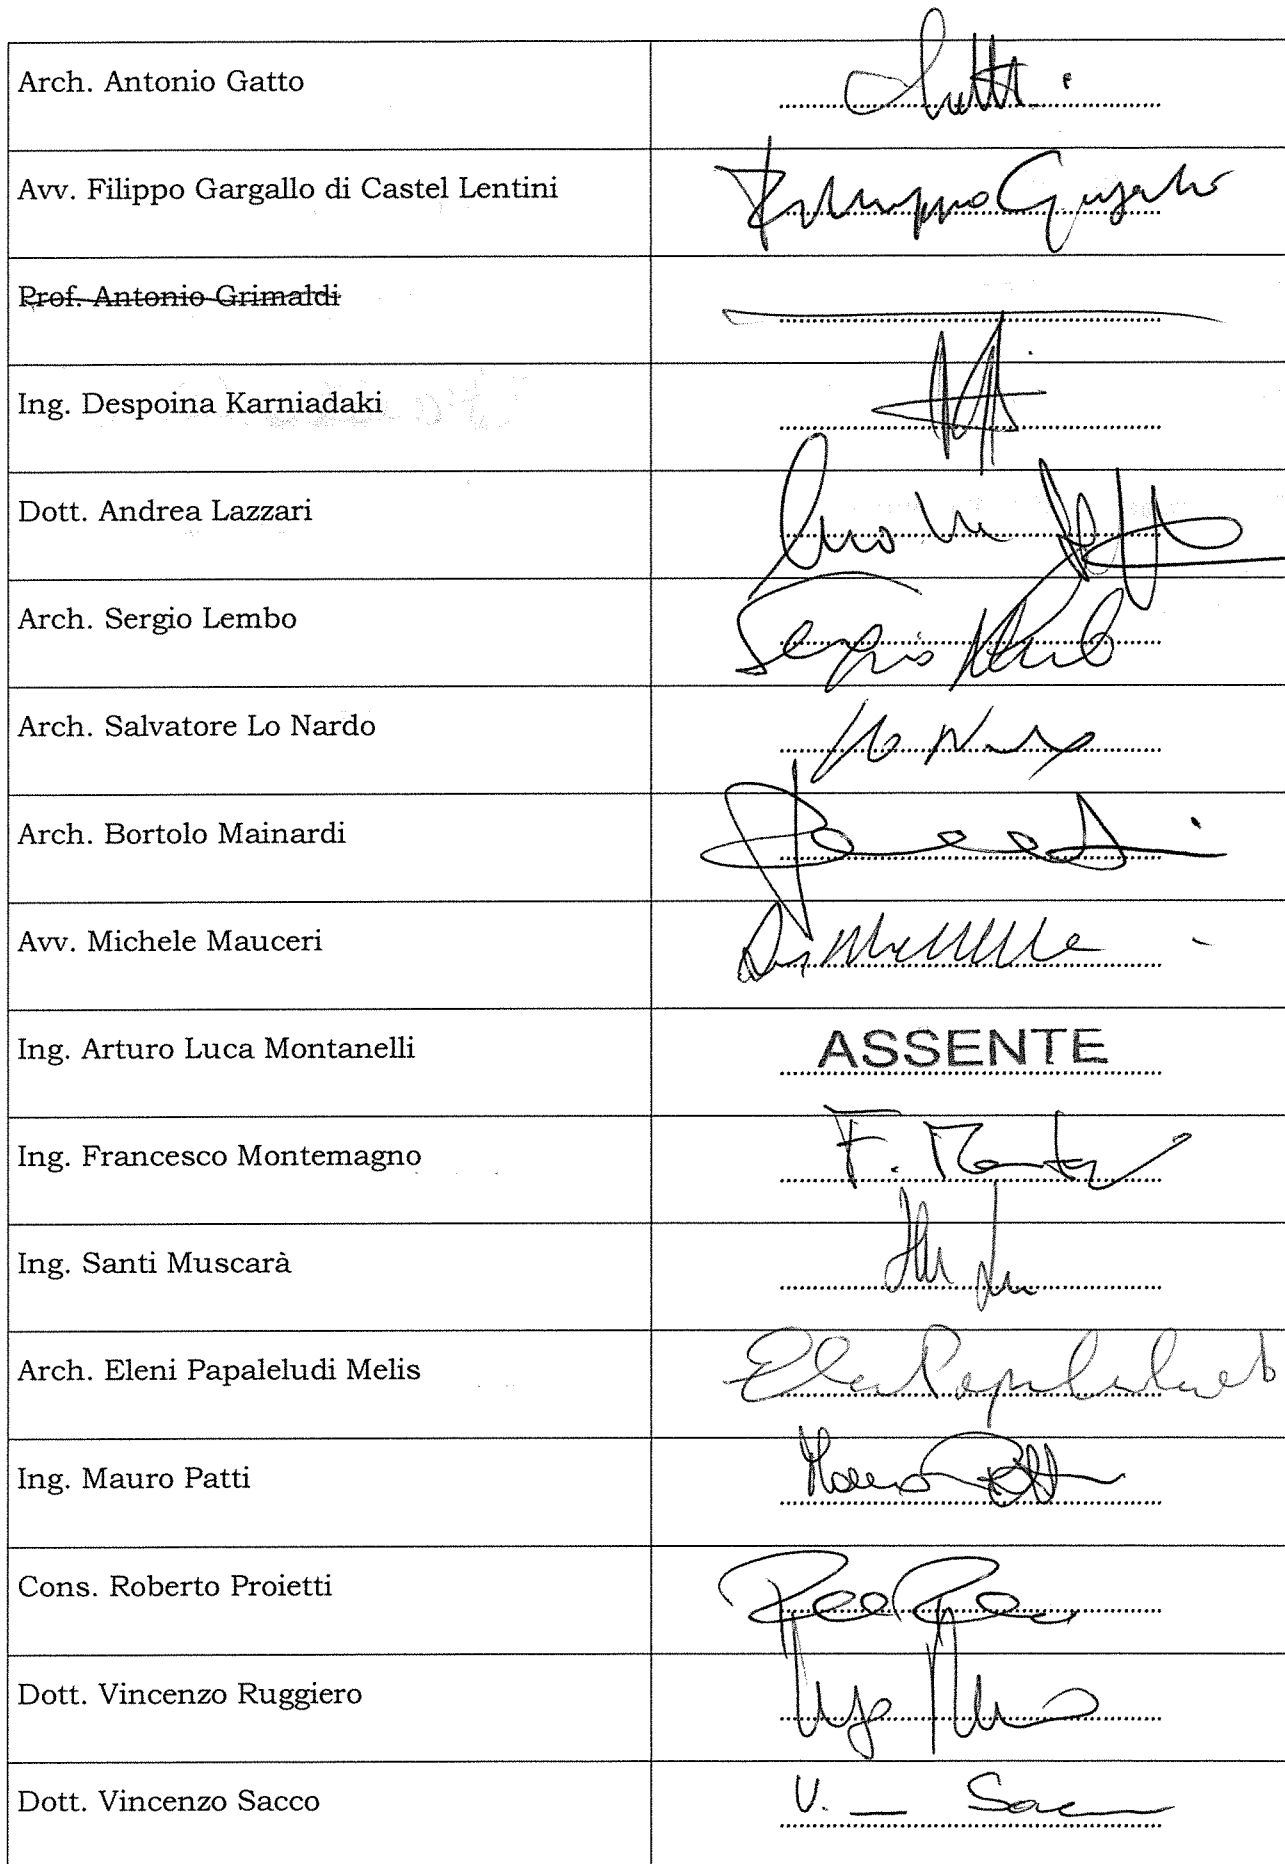 Arch. Antonio Gatto
Avv. Filippo Gargallo di Castel Lentini
Filippo Gargallo
Prof. Antonio Grimaldi
Ing. Despoina Karniadaki
Dott. Andrea Lazzari
Arch. Sergio Lembo
Sergio Lembo
Arch. Salvatore Lo Nardo
Lo Nardo
Arch. Bortolo Mainardi
Avv. Michele Mauceri
Ing. Arturo Luca Montanelli
ASSENTE
Ing. Francesco Montemagno
Ing. Santi Muscarà
Arch. Eleni Papaleludi Melis
Ing. Mauro Patti
Mauro Patti
Cons. Roberto Proietti
Dott. Vincenzo Ruggiero
Dott. Vincenzo Sacco
V. Sacco